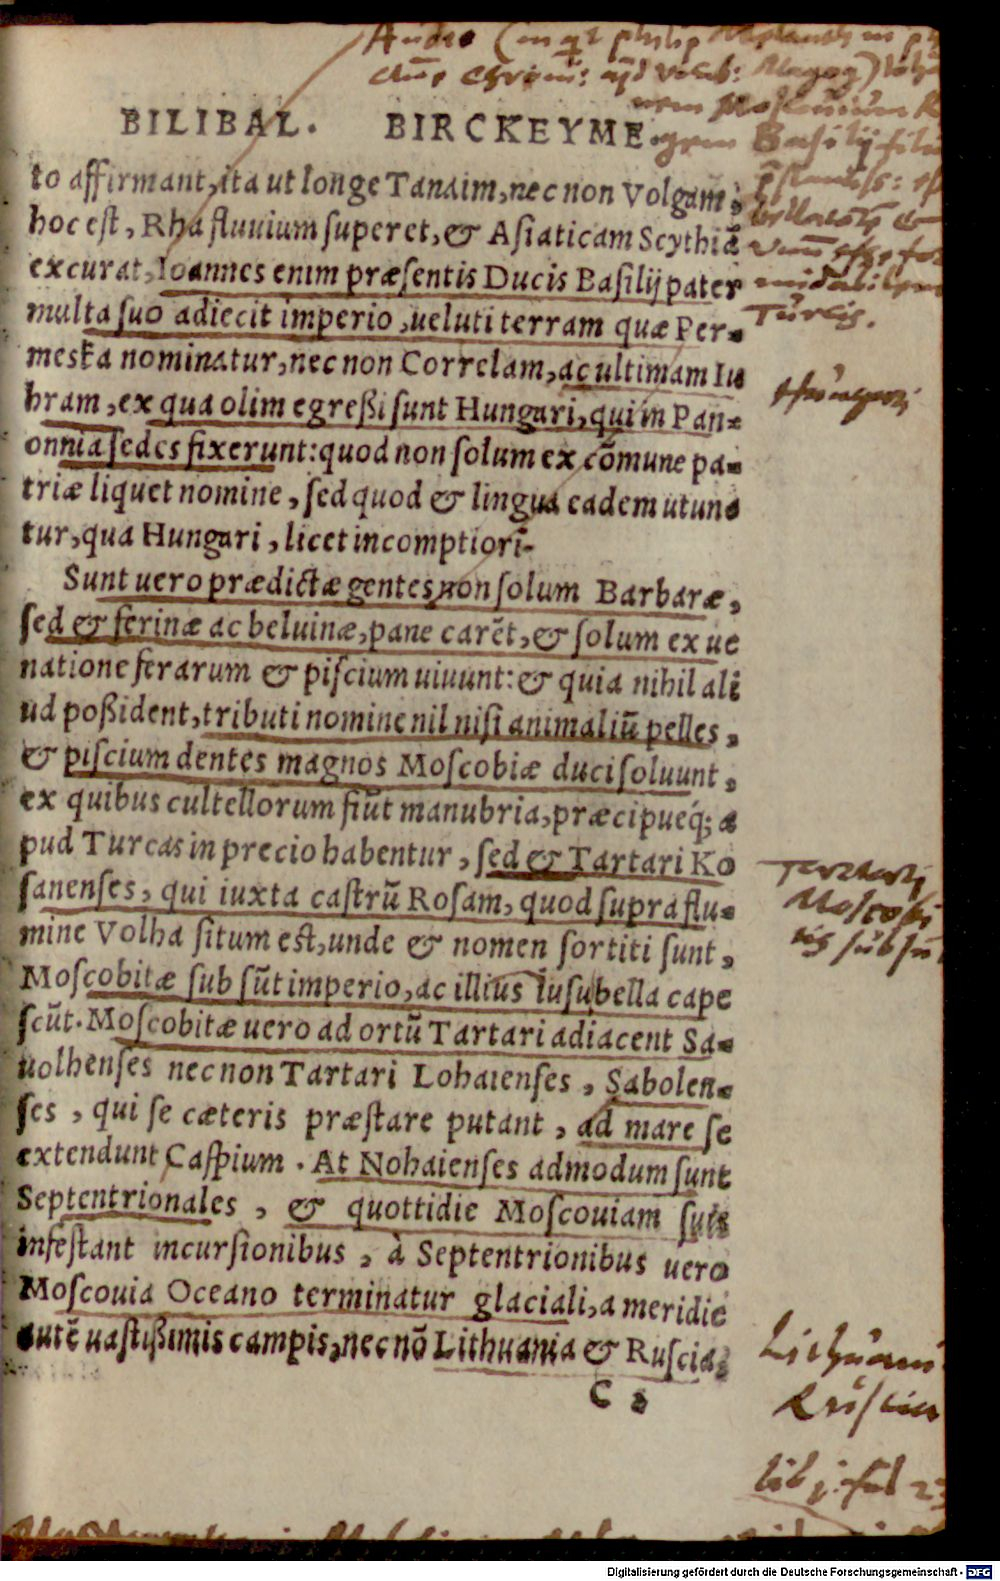 Audio (inqt philip
BILIBAL. BIRCKEYME.
to affirmant, ita ut longe Tanaim, nec non Volgam,
hoc est, Rha fluuium superet, & Asiaticam Scythiā
excurat, Ioannes enim præsentis Ducis Basilij pater
multa suo adiecit imperio, ueluti terram quæ Per-
meska nominatur, nec non Correlam, ac ultimam Iu
hram, ex qua olim egreßi sunt Hungari, qui in Pan-
onnia sedes fixerunt: quod non solum ex cōmune pa-
triæ liquet nomine, sed quod & lingua eadem utun-
tur, qua Hungari, licet incomptiori-
Sunt uero prædictæ gentes non solum Barbaræ,
sed & ferinæ ac beluinæ, pane carēt, & solum ex ue
natione ferarum & piscium uiuunt: & quia nihil ali
ud poßident, tributi nomine nil nisi animaliū pelles,
& piscium dentes magnos Moscobiæ duci soluunt,
ex quibus cultellorum fiūt manubria, præcipueq́; a
pud Turcas in precio habentur, sed & Tartari Ko
sanenses, qui iuxta castrū Rosam, quod supra flu-
mine Volha situm est, unde & nomen sortiti sunt,
Moscobitæ sub sūt imperio, ac illius iusu bella cape
scūt. Moscobitæ uero ad ortū Tartari adiacent Sa-
uolhenses nec non Tartari Lohaienses, Sabolen-
ses, qui se cæteris præstare putant, ad mare se
extendunt Caspium. At Nohaienses admodum sunt
Septentrionales, & quottidie Moscouiam suis
infestant incursionibus, à Septentrionibus uero
Moscouia Oceano terminatur glaciali, a meridie
autē uastißimis campis, necnō Lithuania & Ruscia,
C
Turcis.
Hungari
Tartari
Moscobi
tis subsū
Lithuani
Ruscia
lib j. fol 23
Digitalisierung gefördert durch die Deutsche Forschungsgemeinschaft - DFG